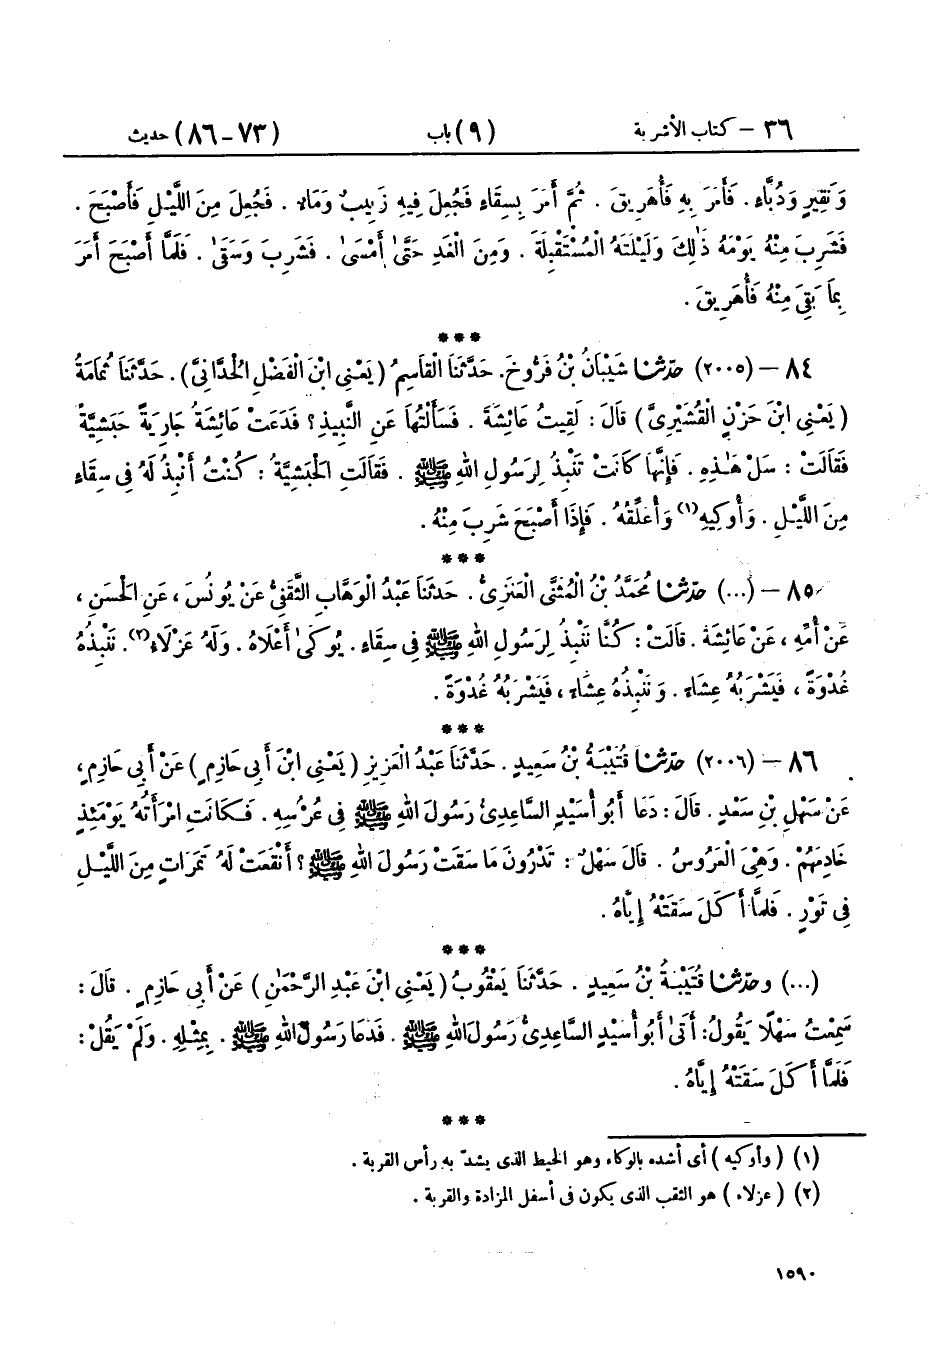 ٣٦ – كتاب الأشربة (٩) باب (٧٣-٨٦) حديث
وَنَقِيرٍ وَدُبَّاءٍ . فَأَمَرَ بِهِ فَأُهَرِيقَ . ثُمَّ أَمَرَ بِسِقَاءٍ فَجُعِلَ فِيهِ زَبِيبٌ وَمَاءٌ . فَجُعِلَ مِنَ اللَّيْلِ فَأَصْبَحَ .
فَشَرِبَ مِنْهُ يَوْمَهُ ذَٰلِكَ وَلَيْلَتَهُ الْمُسْتَقْبِلَةَ . وَمِنَ الْغَدِ حَتَّىٰ أَمْسَىٰ . فَشَرِبَ وَسَقَىٰ . فَلَمَّا أَصْبَحَ أَمَرَ
بِمَا بَقِيَ مِنْهُ فَأُهَرِيقَ .
***
٨٤ – (٢٠٠٥) حدّثنا شَيْبَانُ بْنُ فَرُّوخَ. حَدَّثَنَا الْقَاسِمُ (يَعْنِي ابْنَ الْفَضْلِ الْحُدَّانِيَّ). حَدَّثَنَا ثُمَامَةُ
(يَعْنِي ابْنَ حَزْنٍ الْقُشَيْرِيَّ) قَالَ: لَقِيتُ عَائِشَةَ . فَسَأَلْتُهَا عَنِ النَّبِيذِ؟ فَدَعَتْ عَائِشَةُ جَارِيَةً حَبَشِيَّةً
فَقَالَتْ: سَلْ هَٰذِهِ . فَإِنَّهَا كَانَتْ تَنْبِذُ لِرَسُولِ اللهِ ﷺ . فَقَالَتِ الْحَبَشِيَّةُ: كُنْتُ أَنْبِذُ لَهُ فِي سِقَاءٍ
مِنَ اللَّيْلِ . وَأُوكِيهِ(١) وَأُعَلِّقُهُ . فَإِذَا أَصْبَحَ شَرِبَ مِنْهُ .
***
٨٥ – (...) حدّثنا مُحَمَّدُ بْنُ الْمُثَنَّى الْعَنَزِيُّ. حَدَّثَنَا عَبْدُ الْوَهَّابِ الثَّقَفِيُّ عَنْ يُونُسَ، عَنِ الْحَسَنِ،
عَنْ أُمِّهِ، عَنْ عَائِشَةَ. قَالَتْ: كُنَّا نَنْبِذُ لِرَسُولِ اللهِ ﷺ فِي سِقَاءٍ. يُوكَىٰ أَعْلَاهُ. وَلَهُ عَزْلَاءُ(٢). نَنْبِذُهُ
غُدْوَةً، فَيَشْرَبُهُ عِشَاءً. وَنَنْبِذُهُ عِشَاءً، فَيَشْرَبُهُ غُدْوَةً.
***
٨٦ – (٢٠٠٦) حدّثنا قُتَيْبَةُ بْنُ سَعِيدٍ. حَدَّثَنَا عَبْدُ الْعَزِيزِ (يَعْنِي ابْنَ أَبِي حَازِمٍ) عَنْ أَبِي حَازِمٍ،
عَنْ سَهْلِ بْنِ سَعْدٍ. قَالَ: دَعَا أَبُو أُسَيْدٍ السَّاعِدِيُّ رَسُولَ اللهِ ﷺ فِي عُرْسِهِ. فَكَانَتِ امْرَأَتُهُ يَوْمَئِذٍ
خَادِمَهُمْ. وَهِيَ الْعَرُوسُ. قَالَ سَهْلٌ: تَدْرُونَ مَا سَقَتْ رَسُولَ اللهِ ﷺ؟ أَنْقَعَتْ لَهُ تَمَرَاتٍ مِنَ اللَّيْلِ
فِي تَوْرٍ. فَلَمَّا أَكَلَ سَقَتْهُ إِيَّاهُ.
***
(...) وحدّثنا قُتَيْبَةُ بْنُ سَعِيدٍ. حَدَّثَنَا يَعْقُوبُ (يَعْنِي ابْنَ عَبْدِ الرَّحْمَٰنِ) عَنْ أَبِي حَازِمٍ. قَالَ:
سَمِعْتُ سَهْلًا يَقُولُ: أَتَىٰ أَبُو أُسَيْدٍ السَّاعِدِيُّ رَسُولَ اللهِ ﷺ. فَدَعَا رَسُولَ اللهِ ﷺ. بِمِثْلِهِ. وَلَمْ يَقُلْ:
فَلَمَّا أَكَلَ سَقَتْهُ إِيَّاهُ.
***
(١) (وأوكيه) أى أشده بالوكاء وهو الخيط الذى يشدّ به رأس القربة.
(٢) (عزلاء) هو الثقب الذى يكون فى أسفل المزادة والقربة.
١٥٩٠